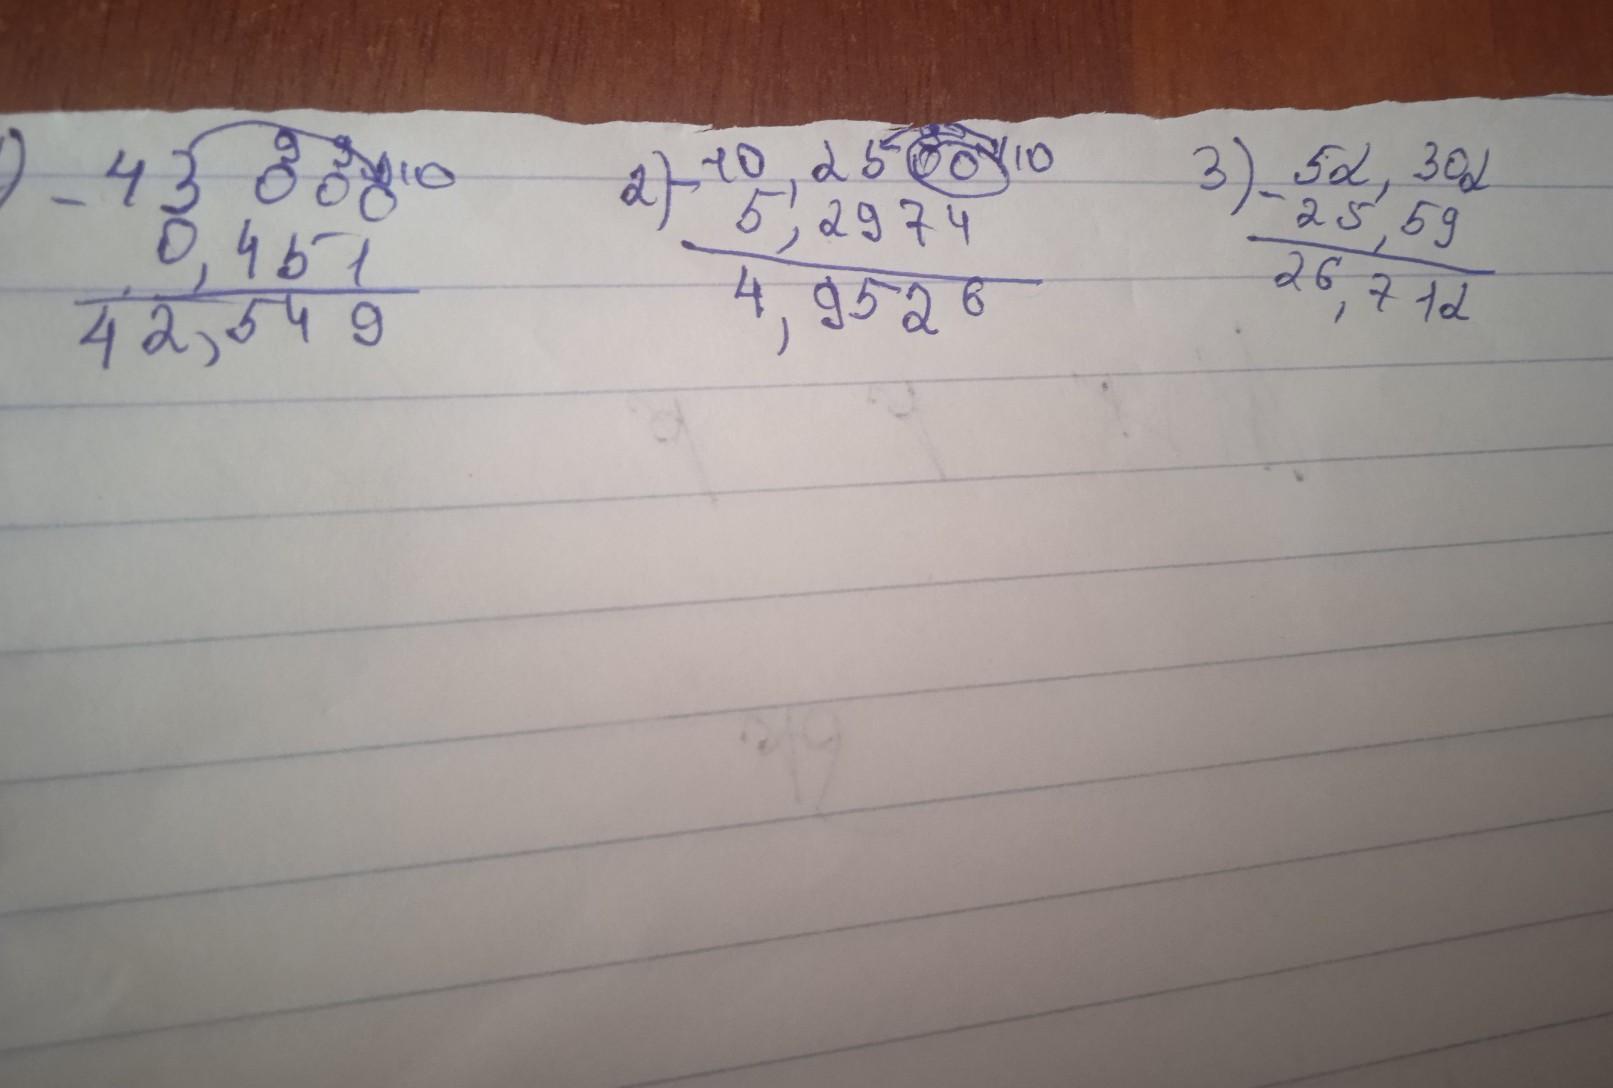 ) - 43 000 10
9 9
0,451
42,549
2) - 10,2500 10
5,2974
4,9526
3) - 52,302
25,59
26,712